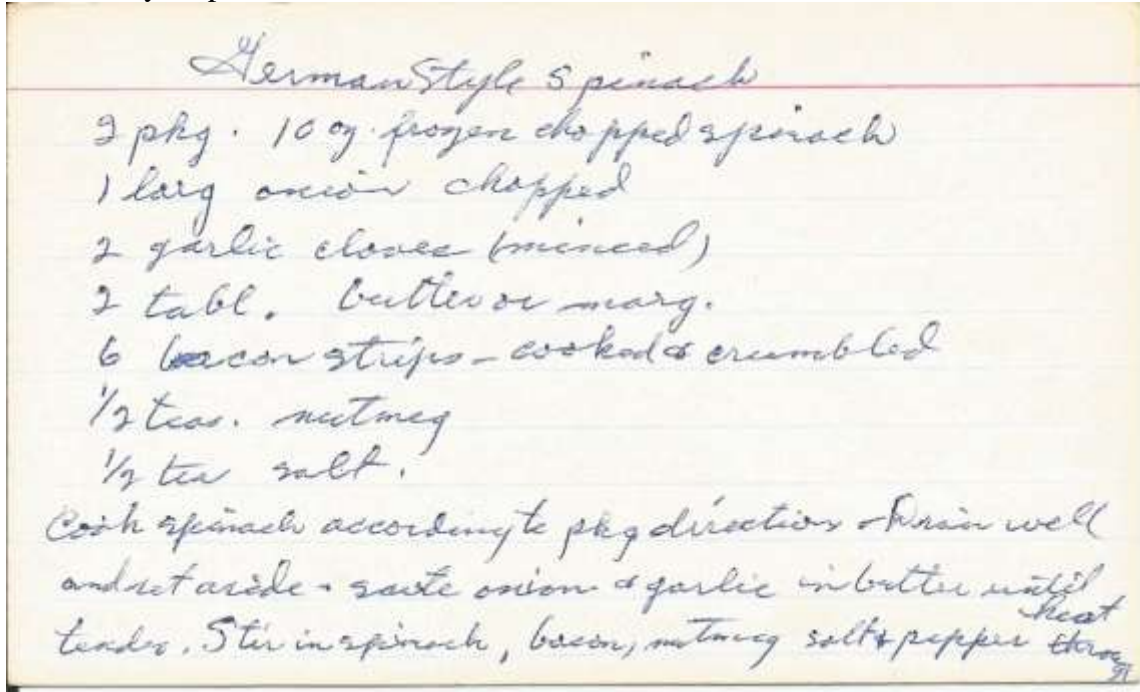 German Style Spinach
2 pkg. 10 oz. frozen chopped spinach
1 larg onion chopped
2 garlic cloves (minced)
2 tabl. butter or marg.
6 bacon strips - cooked & crumbled
1/2 teas. nutmeg
1/2 tea salt.
Cook spinach according to pkg direction - Drain well
and set aside - saute onion & garlic in butter until
tender. Stir in spinach, bacon, nutmeg salt & pepper heat